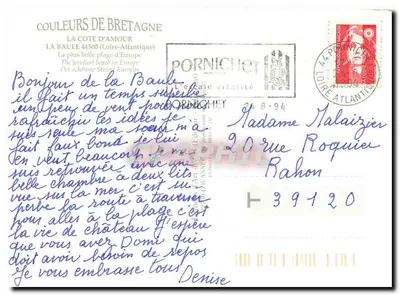 COULEURS DE BRETAGNE
LA COTE D'AMOUR
LA BAULE 44500 (Loire-Atlantique)
La plus belle plage d'Europe
The loveliest beach in Europe
Der schönste Strand Europas
PORNICHET
vitalité
PORNICHET
2 8 - 94
44 PORNICHET
LOIRE ATLANTIQUE
Bonjour de la Baule
il fait un temps superbe
un peu de vent pour vous
rafraichir tes idées je
suis seule ma sœur m'a
fait faux bond je lui
en veut beaucoup
suis retrouvée avec une
belle chambre à deux lits
vue sur la mer c'est su
perbe la route à traverser
pour alles à la plage c'est
la vie de château J'espère
que vous avez Domi qui
doit avoir besoin de repos
Je vous embrasse tous
Denise
Madame Malaizier
20 rue Roquier
Rahon
T 39120